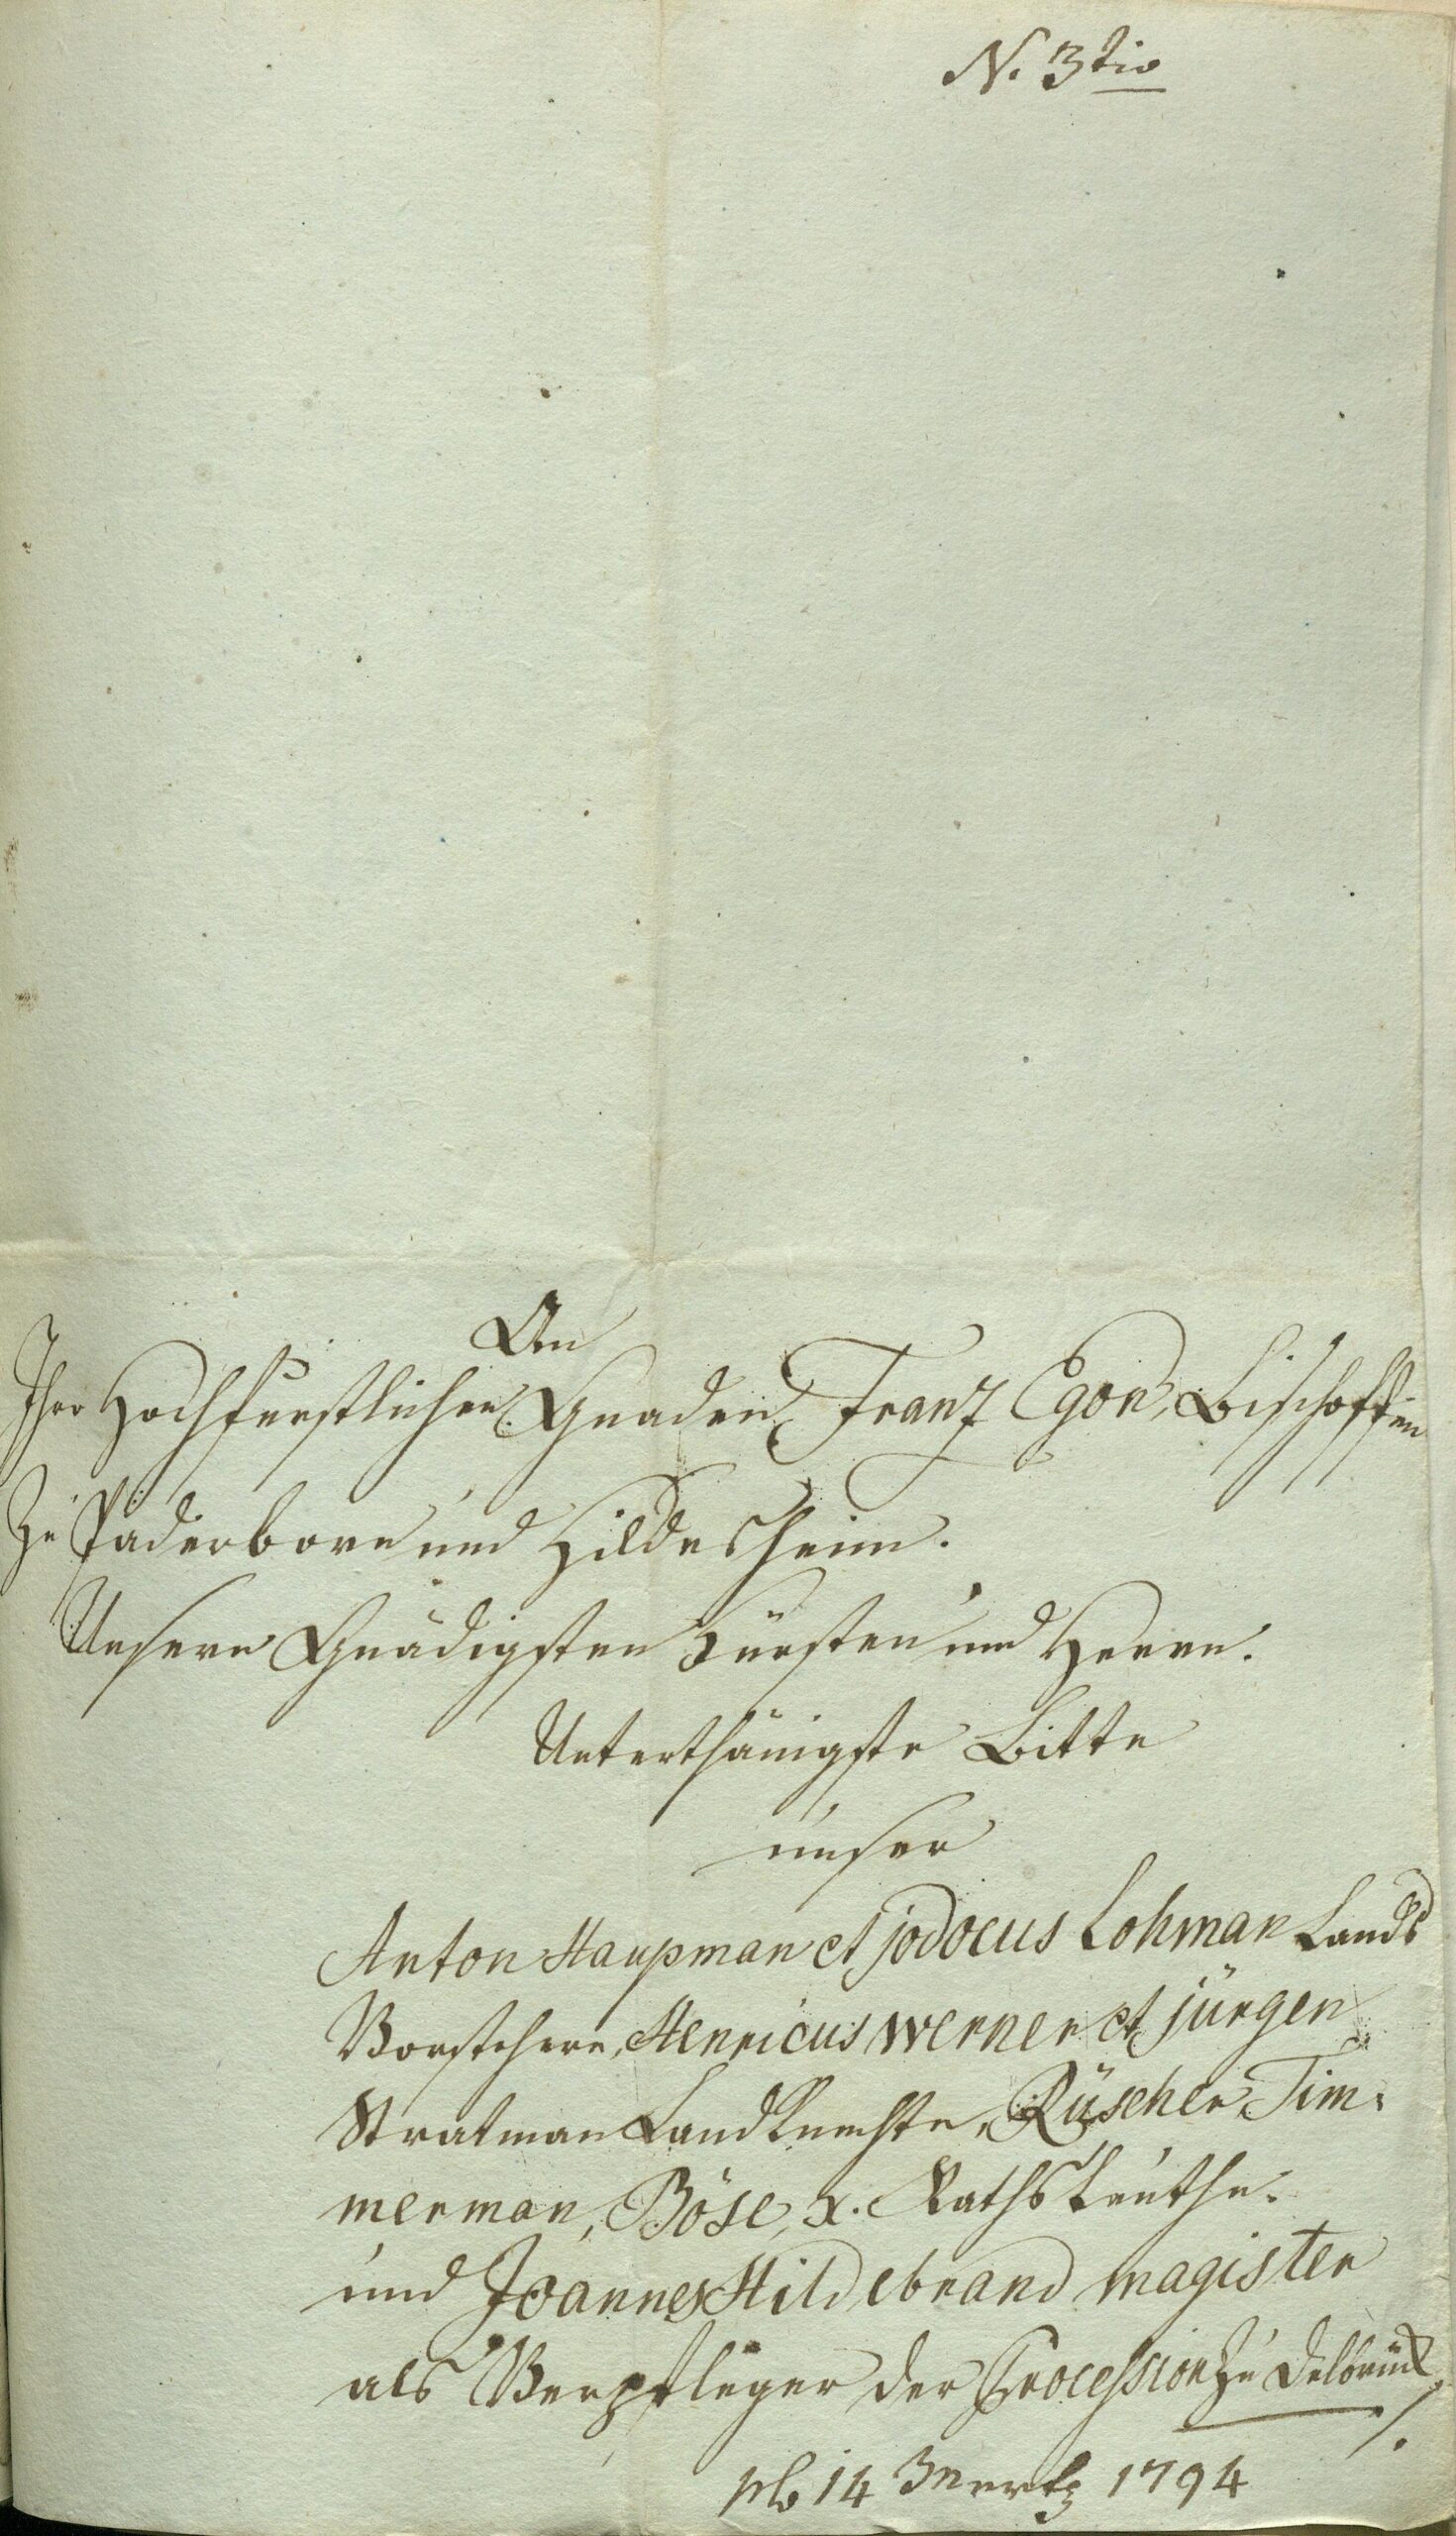 N. 3tio
An
Ihro Hochfürstlichen Gnaden Franz Egon, Bischoffen
zu Paderborn und Hildesheim.
Unsern Gnädigsten Fürsten und Herrn.
Unterthänigste Bitte
unser
Anton Haupman et jodocus Lohman Lands
Vorstehere, Henricus werner et jürgen
Stratman Landknechte, Rüscher, Tim:
merman, Böse, x. Rathsleuthe.
und Joannes Hildebrand magister
als Verpfleger der Procession zu Delbrück
14 Mertz 1794